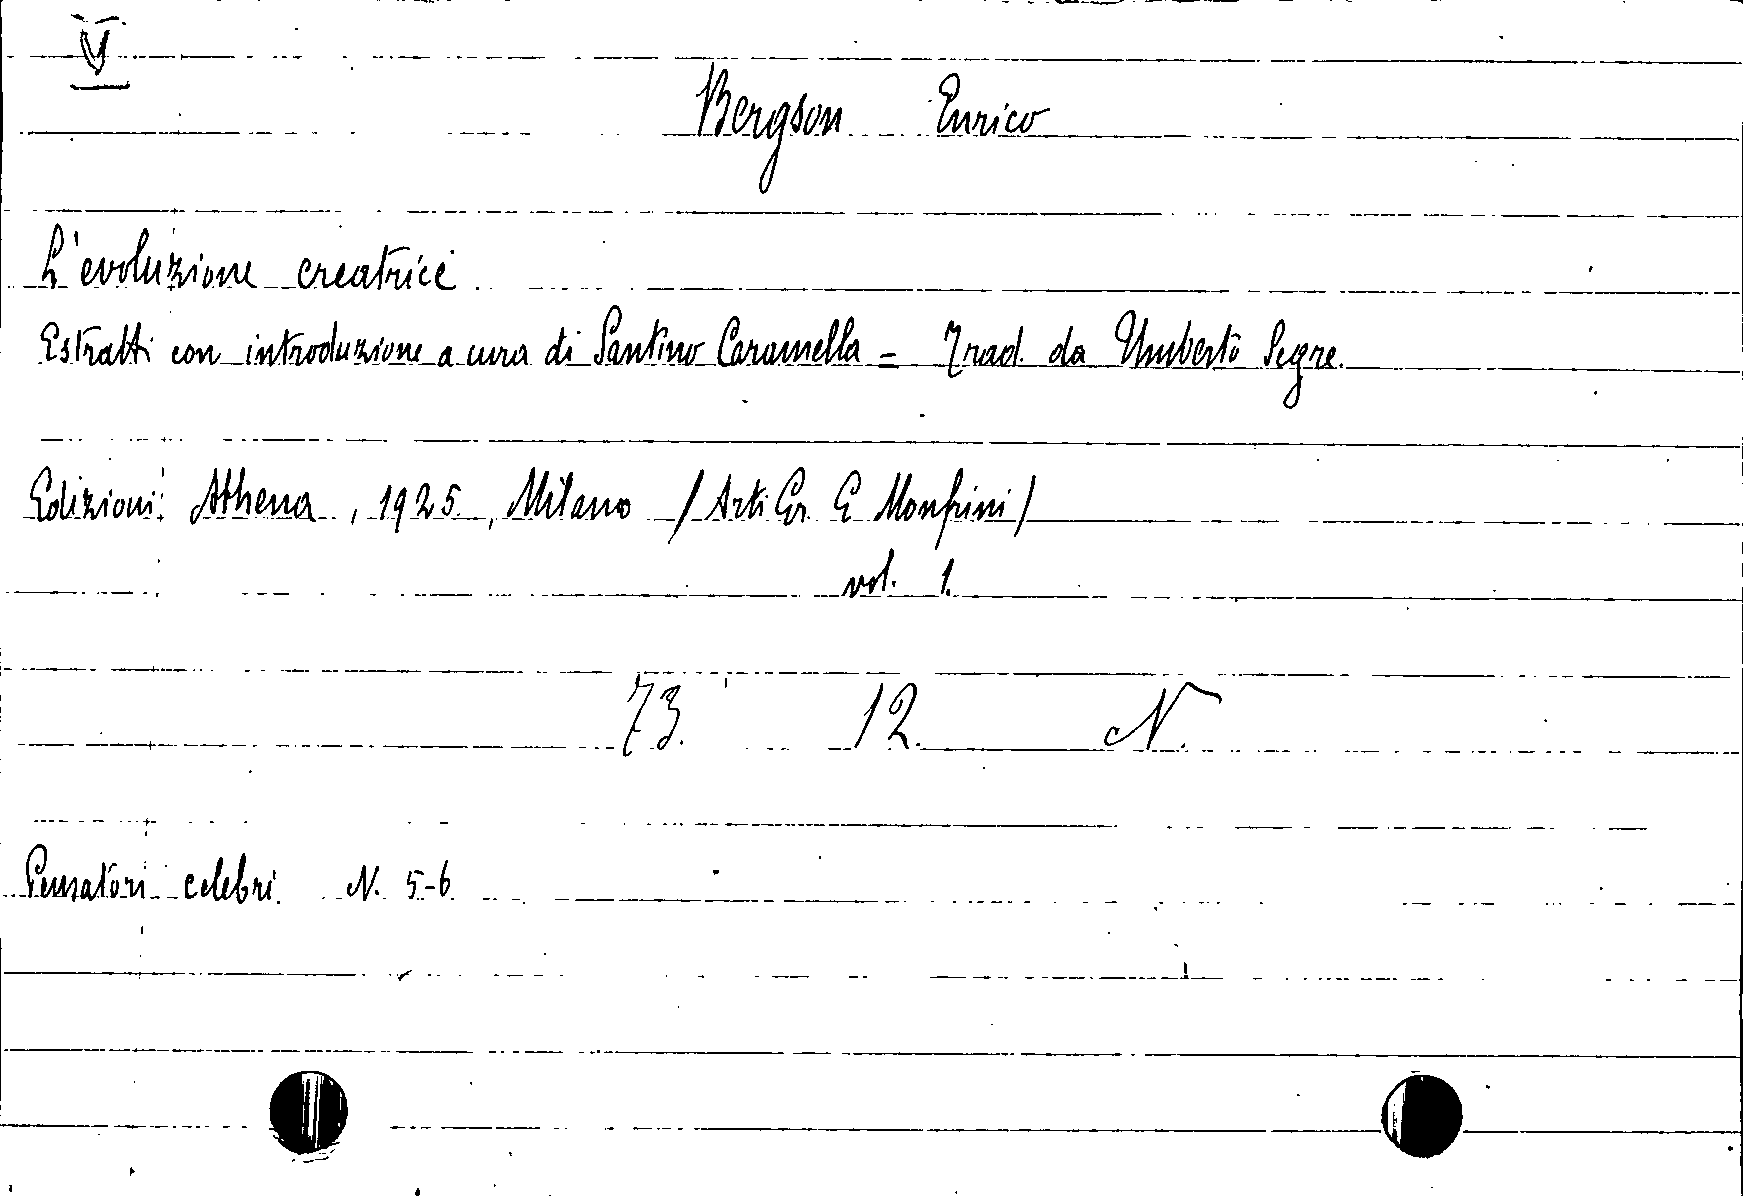 V
Bergson Enrico
L'evoluzione creatrice
Estratti con introduzione a cura di Santino Caramella = Trad. da Umberto Segre.
Edizioni Athena, 1925, Milano / Arti Gr. E Monfrini /
vol. 1.
73. 12. N.
Pensatori celebri. N. 5-6